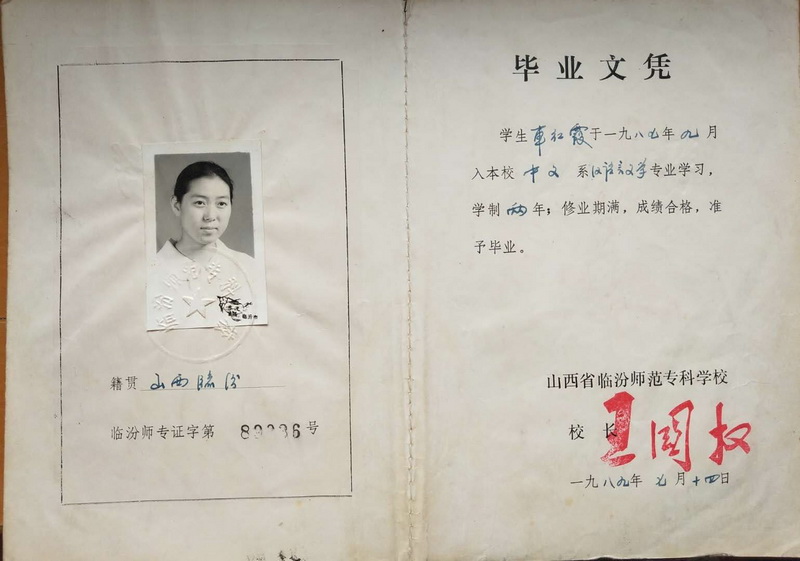 籍贯 山西临汾
临汾师专证字第 89236 号
毕业文凭
学生車红霞于一九八七年九月
入本校 中文 系汉语言文学专业学习，
学制 两 年；修业期满，成绩合格，准
予毕业。
山西省临汾师范专科学校
校长
国权
一九八九年 七 月 十四日